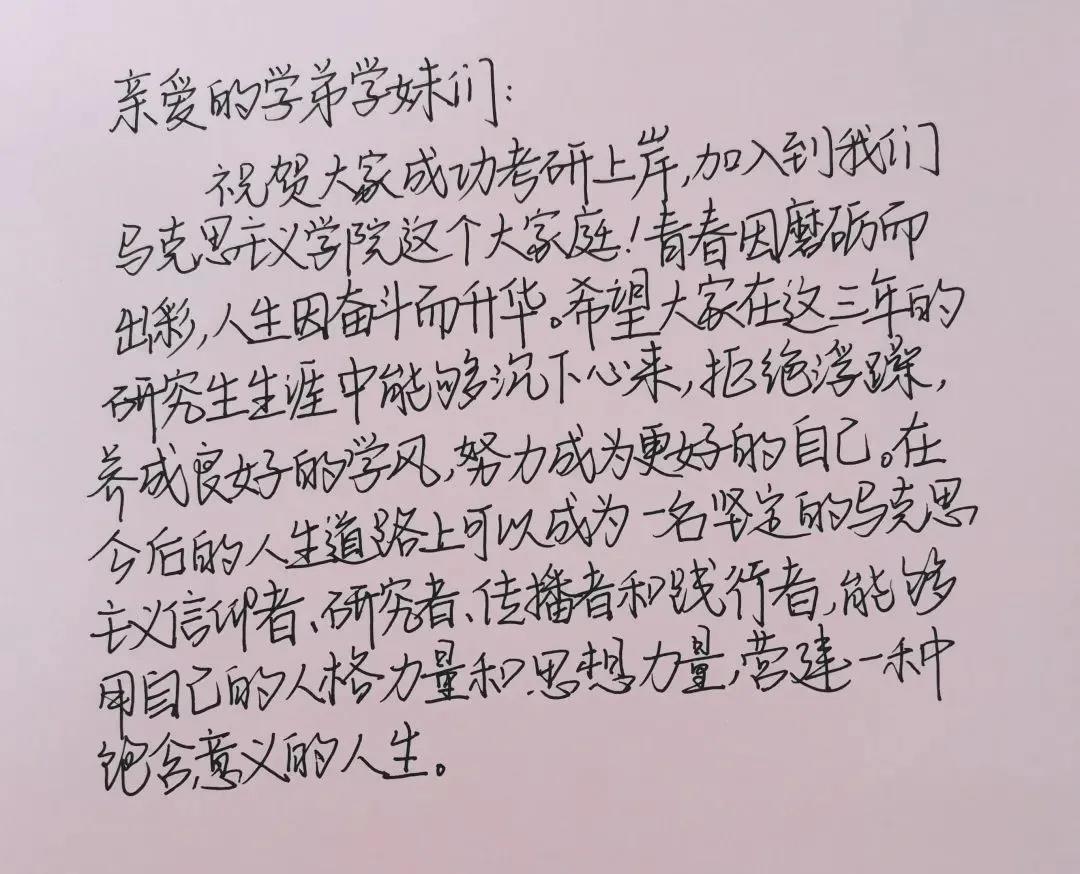 亲爱的学弟学妹们：
祝贺大家成功考研上岸，加入到我们
马克思主义学院这个大家庭！青春因磨砺而
出彩，人生因奋斗而升华。希望大家在这三年的
研究生生涯中能够沉下心来，拒绝浮躁，
养成良好的学风，努力成为更好的自己。在
今后的人生道路上可以成为一名坚定的马克思
主义信仰者、研究者、传播者和践行者，能够
用自己的人格力量和思想力量，营建一种
饱含意义的人生。